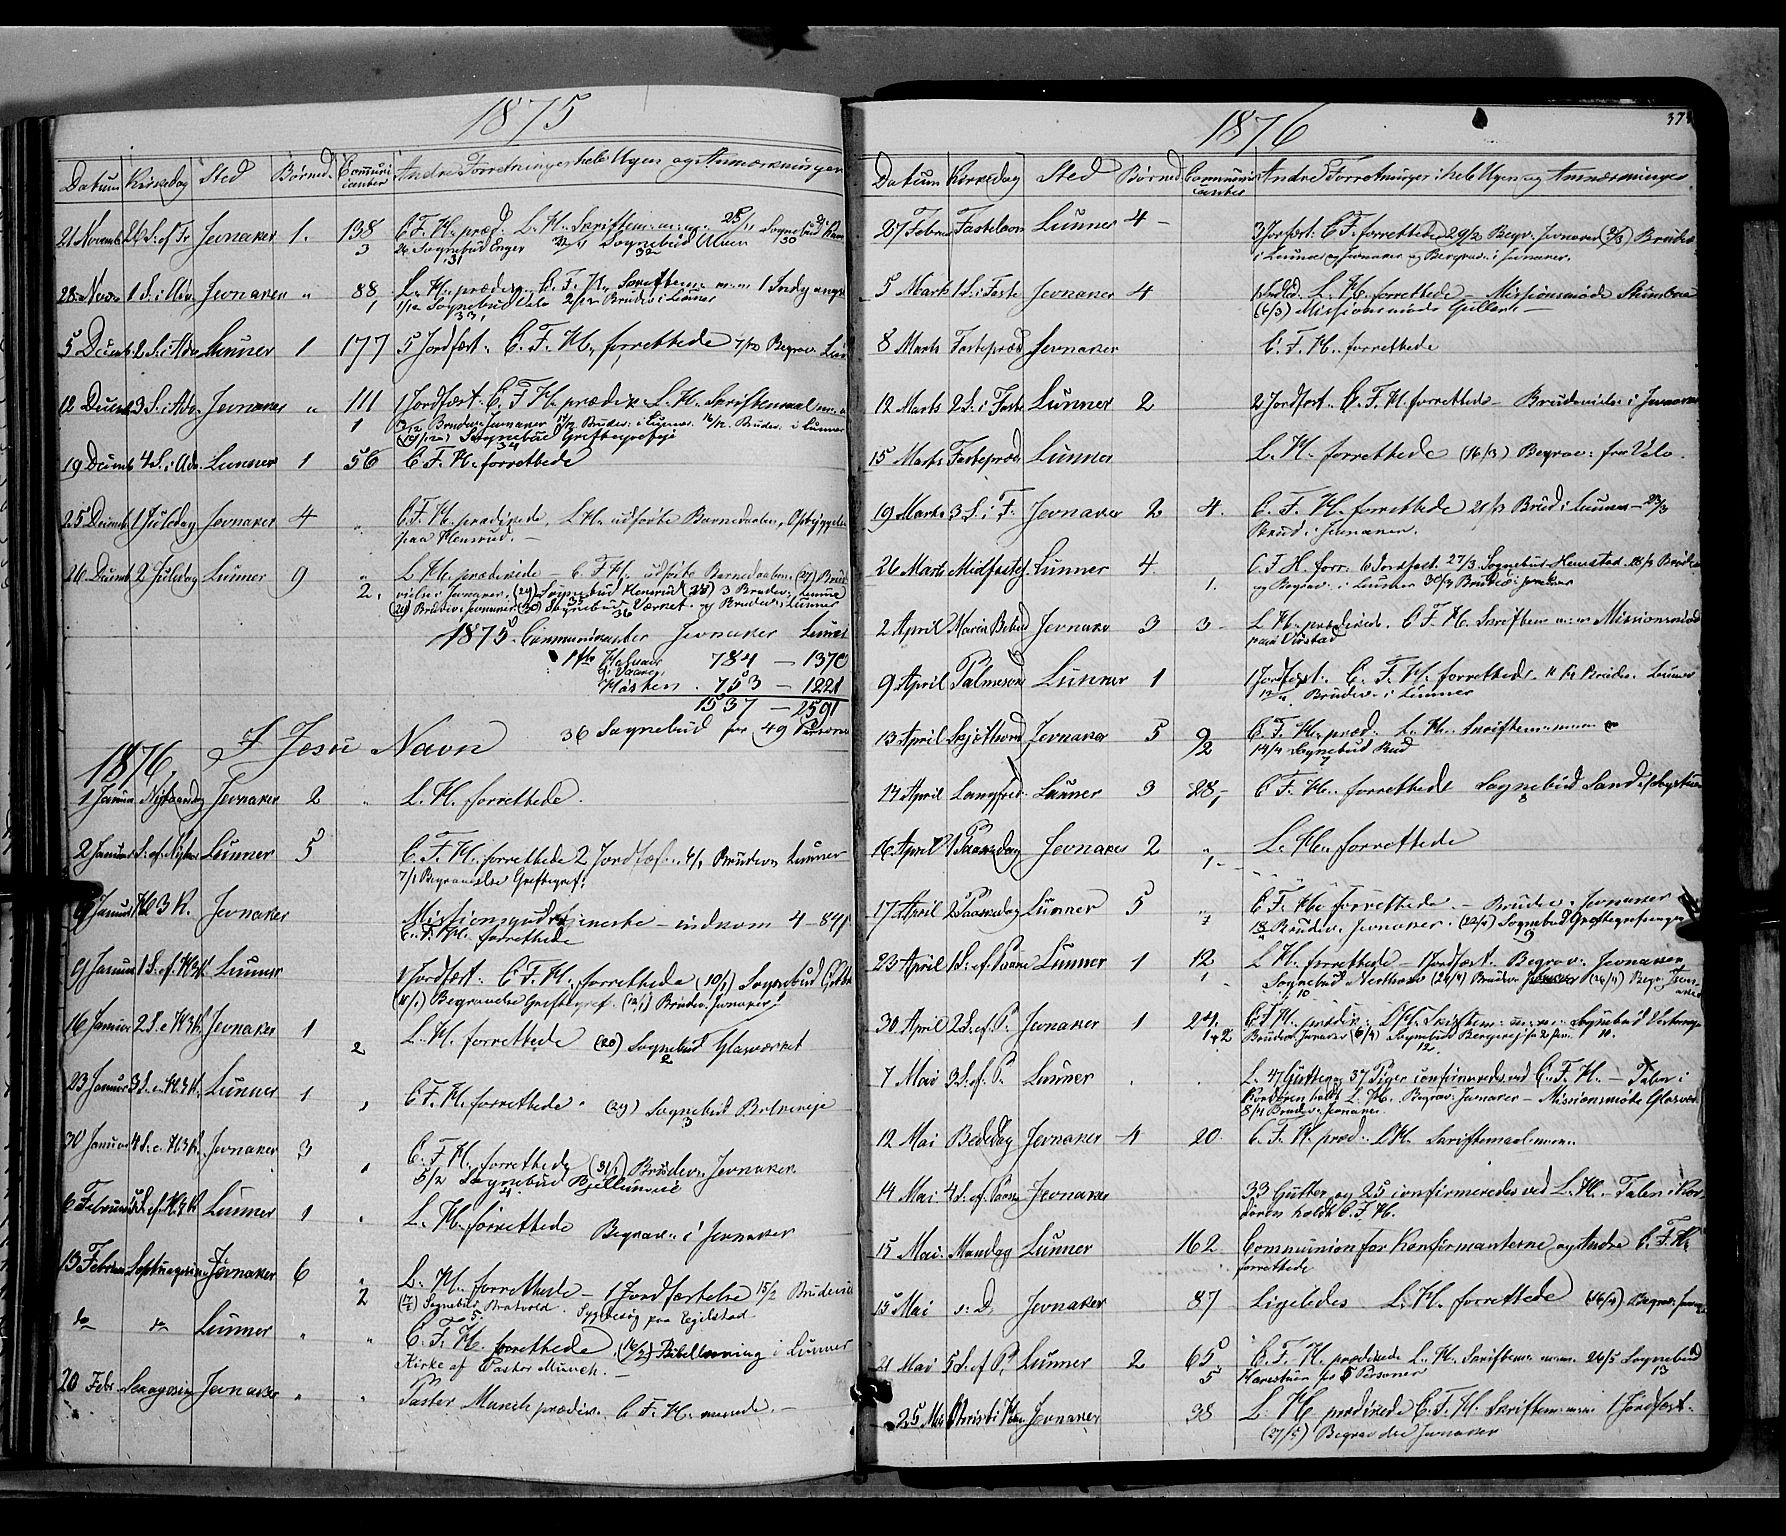 1875
Datum Kirkedag Sted Børned. Communicanter Andre Forretninger hele Ugen og Anmærkninger
21 Novemb. 26 S. ef Tr Jevnaker 1. 138 C. F. H. præd. L. H. Skriftem. m.m. 25/11 Sognebud
3 Sognebud Enger Sognebud Ulven
31 32 30
28 Nov. 1 S. i Adv. Jevnaker " 88 L. H. præder. C. F. H. Skriftem. m.m.
1 1/12 Sognebud Velo 2/12 Brudev. i Lunner
33
5 Decemb. 2 S. i Adv. Lunner 1 177 5 Jordfæst. C. F. H. forrettede 7/12 Begrav.
12 Decemb. 3 S. i Adv. Jevnaker " 111 1 Jordfæst. C. F. H. prædik. L. H. Skriftemaal m.m.
1 Brudev. Jevnaker Brudev. i Lunner. Brudev. i Lunner
Sognebud Greftegrefseje
34
19 Decemb. 4 S. i Adv. Lunner 1 56 C. F. H. forrettede
25 Decemb. 1 Juledag Jevnaker 4 " C. F. H. prædikede, L. H. udførte Barnedaaben, Opbyggelse
paa Hensrud.
26 Decemb. 2 Juledag Lunner 9 " L. H. prædikede – C. F. H. udførte Barnedaaben. (27) Brud
2. vielse Jevnaker, (29) Sognebud Hensrud (28) 3 Brudev. Lunner
Brudev. Jevnaker (30) Sognebud Værket og Brudev. Lunner
36
1875. Communicanter Jevnaker Lunner
1ste Halvaar 784 – 1370
i Vaaren
Høsten. 753 – 1221
1537 – 2591
36 Sognebud for 49 Personer
1876, I Jesu Navn
1 Januar Nytaarsdag Jevnaker 2 " L. H. forrettede.
2 Januar S. ef. Nytaar Lunner 5 C. F. H. forrettede 2 Jordfæst. 4/1 Brudev. Lunner
7/1 Begravelse Greftegref.
6 Januar H 3 K. Jevnaker Missionsgudstjeneste – indkom 4 – 84
C. F. H. forrettede
9 Januar 1 S. ef. H3K. Lunner 1 Jordfæst. C. F. H. forrettede (10/1) Sognebud
(11/1) Begravelse Greftegref. (12/1) Brudev. Jevnaker
16 Januar 2 S. e H3K. Jevnaker 1 L. H. forrettede (20) Sognebud Glasværket
2 2
23 Januar 3 S. e. H3K. Lunner 1 C. F. H. forrettede. (29) Sognebud
1 3
30 Januar 4 S. e. H3K. Jevnaker 3 C. F. H. forrettede (31/1) Brudev. Jevnaker
1 5/2 Sognebud Bjellumeie
4
6 Februar 5 S. ef. H3K Lunner 1 L. H. forrettede Begrav. i Jevnaker
13 Februar Septuagesima Jevnaker 6 " L. H. forrettede – 1 Jordfæstelse 15/2 Brudevi
2 Sognebud Bratvold. Sygbesøg paa Egilstad
5.
do do Lunner " " C. F. H. forrettede (16/2) Bibellæsning i Lunner
Kirke af Pastor Munch. –
20 Febr. Sexagesim Jevnaker " " Pastor Munch prædik. C. F. H. messede. –
1876
Datum Kirkedag Sted Børned Communicanter Andre Forretninger i hele Ugen og Anmærkninger
27 Febru Fastelavn Lunner 4 – 3 Jordfæst. C F. forrettede 29/2 Begr. Jevnaker (2/3) Brudev.
i Lunner og Jevnaker og Begrav. i Jevnaker.
5 Marts 1 S. i Faste Jevnaker 4 L. H. forrettede – Missionsmøde
(6/3) Missionsmøde
8 Marts Fastepræd. Jevnaker C. F. H. forrettede
12 Marts 2 S. i Faste Lunner 2 2 Jordfæst. C. F. H. forrettede – Brudevielse i Jevnaker
15 Marts Fastepræd. Lunner L. H. forrettede (16/3) Begrav. fra Velo.
19 Marts 3 S. i F. Jevnaker 2 4. C. F. H. forrettede 21/3 Brud i Lunner – 23/3
Brud i Jevnaker.
26 Marts Midfaste Lunner 4. C F H. forr. 6 Jordfæst. 27/3 Sognebud Brud
1. og Begrav. i Lunner 30/3 Brudev. i Jevnaker
2 April Maria Bebud Jevnaker 3 3 – L. H. prædiked. C. F. H. Skriftem. m.m Missionsmøde
paa
9 April Palmesønd Lunner 1 1 Jordfæst. C. F. H. forrettede, Brudev. Lunner
Brudev. i Lunner
13 April Skjærthorsd Jevnaker 5 9 C. F. H. præd. L. H. Skriftem. m.m.
2 14/4 Sognebud Rud
7
14 April Langfred. Lunner 3 28, – C. F. H. forrettede Sognebud Sand
8
16 April 1 Paaskedag Jevnaker 2 " L. H. forrettede
1
17 April 2 Paaskedag Lunner 5 " C. F. H. forrettede. – Brudev. Jevnaker
Brudev. Jevnaker. (22/4) Sognebud Greftegrefs
9
23 April 1 S. ef. Paaske Lunner 1 12 L. H. forrettede – 1 Jordfæst. Begrav. Jevnaker
1 Sognebud (24/4) Brudev. (26/4) Begr. Jevnaker
10
30 April 2 S. ef. P. Jevnaker 1 24. C. F. H. prædik. L. H. Skriftem. m.m. Sognebud
1+2 Brudev. Jevnaker Sognebud
12. 11.
7 Mai 3 S. ef. P. Lunner . . L. 47 Gutter og 37 Piger confirmerede ved C. F. H. – Talen i
Kordøren holdt L. H. Begrav. Jevnaker – Missionsmøde Glasværk
Brudev. Jevnaker.
12 Mai Bededag Jevnaker 4 20. C. F. H. præd. L. H. Skriftemaal m.m.
14 Mai 4 S. ef. Paaske Jevnaker 33 Gutter og 25 confirmeredes ved L. H. – Talen i Kor
døren holdt C. F. H.
15 Mai. Mandag Lunner 162 Communion for Confirmanterne og Andre C. F. H.
forrettede
15 Mai s: D. Jevnaker 87 Ligeledes L. H. forrettede Begrav. Jevnaker
21 Mai 5 S. ef P. Lunner 2 65 C. F. H. prædikede L. H. Skriftem. m.m. 26/5 Sognebud
5 for 5 Personer 13
25 Mai Christi H. Jevnaker 38 L. H. prædikede C. F. H. Skriftem. m.m. 1 Jordfæst.
(27/5) Begrav. Jevnaker